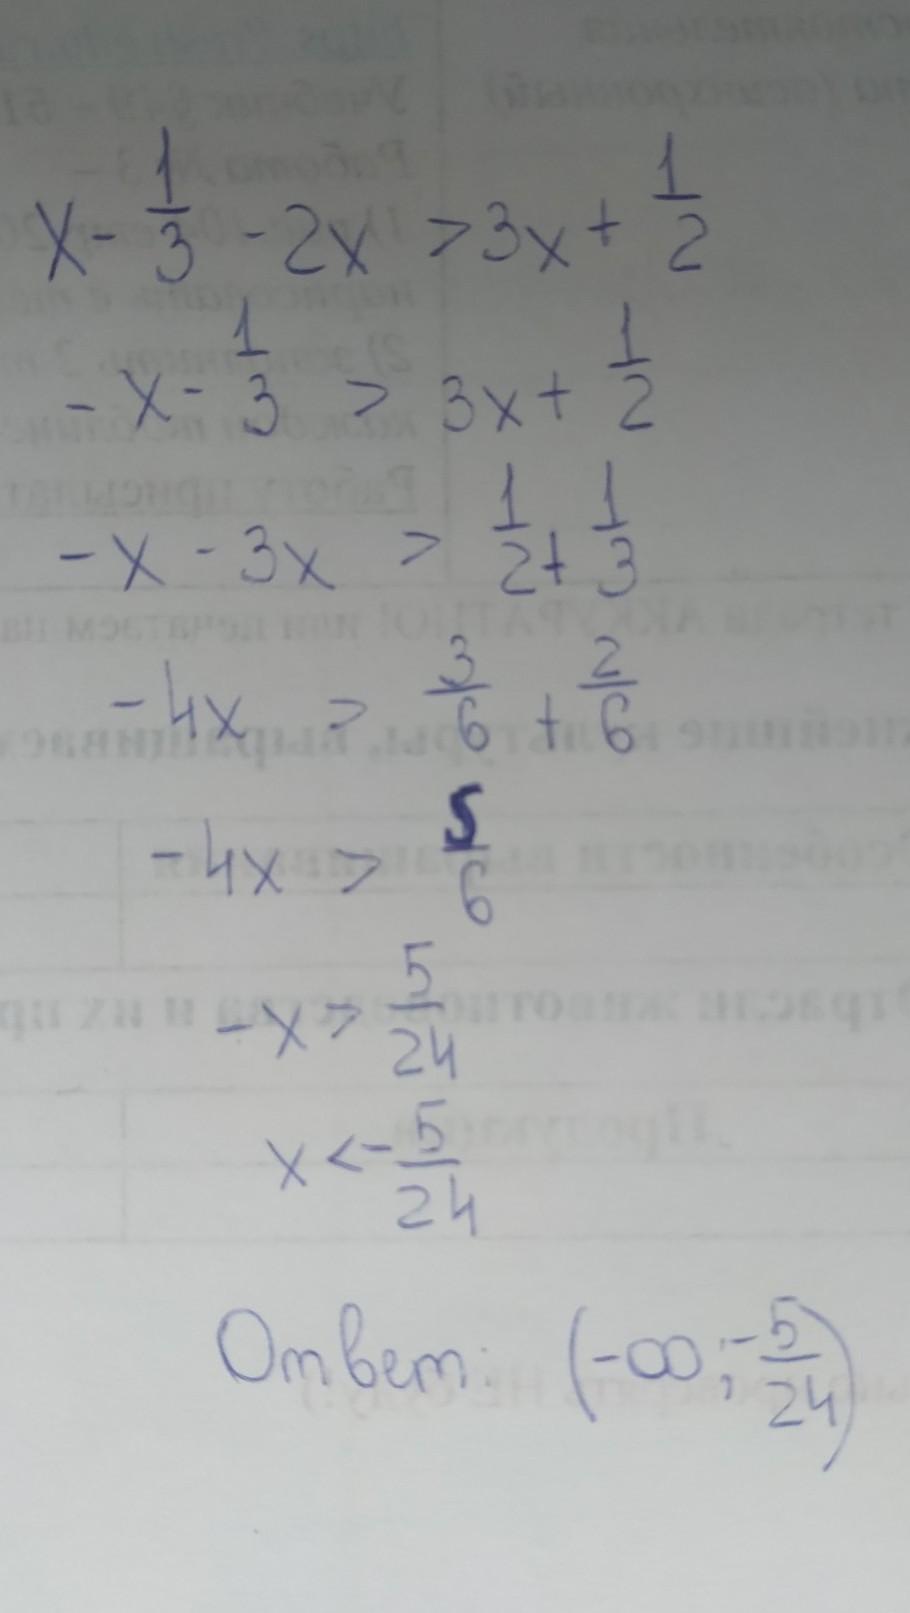 x - 1/3 - 2x > 3x + 1/2
- x - 1/3 > 3x + 1/2
- x - 3x > 1/2 + 1/3
- 4x > 3/6 + 2/6
- 4x > 5/6
- x > 5/24
x < - 5/24
Ответ: (-∞; - 5/24)